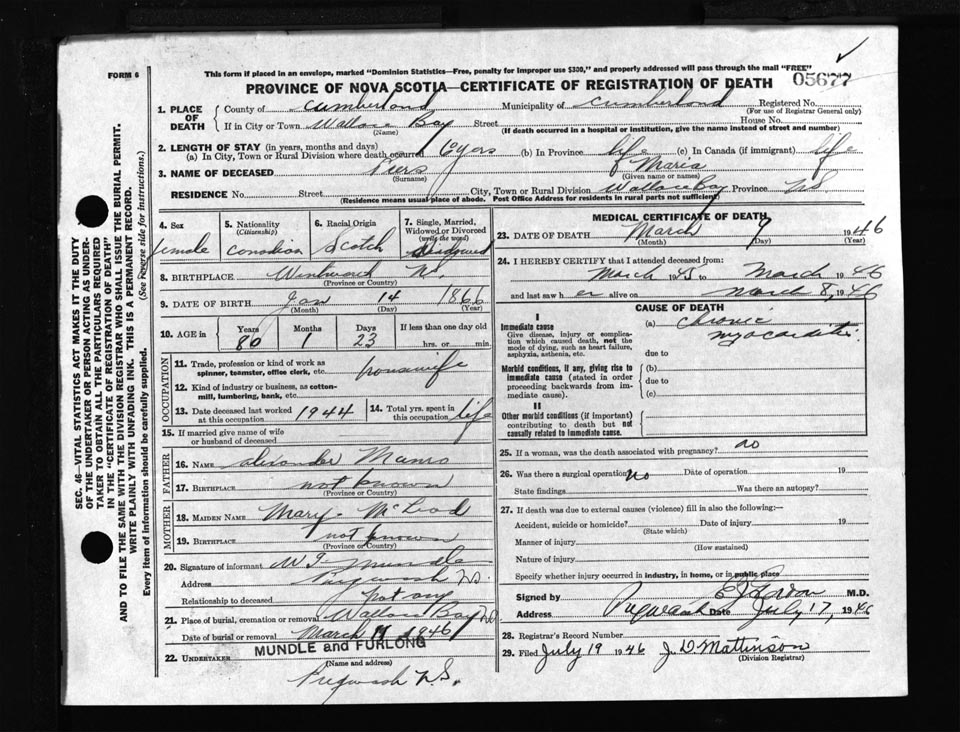 FORM 6
This form if placed in an envelope, marked "Dominion Statistics—Free, penalty for improper use $300," and properly addressed will pass through the mail "FREE"
05677
PROVINCE OF NOVA SCOTIA—CERTIFICATE OF REGISTRATION OF DEATH
SEC. 46—VITAL STATISTICS ACT MAKES IT THE DUTY
OF THE UNDERTAKER OR PERSON ACTING AS UNDER-
TAKER TO OBTAIN ALL THE PARTICULARS REQUIRED
IN THE "CERTIFICATE OF REGISTRATION OF DEATH"
AND TO FILE THE SAME WITH THE DIVISION REGISTRAR WHO SHALL ISSUE THE BURIAL PERMIT.
WRITE PLAINLY WITH UNFADING INK. THIS IS A PERMANENT RECORD.
Every item of information should be carefully supplied. (See Reverse side for instructions.)
1. PLACE OF DEATH
County of Cumberland Municipality of Cumberland Registered No.
(For use of Registrar General only)
If in City or Town Wallace Bay Street House No.
(Name) (If death occurred in a hospital or institution, give the name instead of street and number)
2. LENGTH OF STAY (in years, months and days)
(a) In City, Town or Rural Division where death occurred 6 yers (b) In Province life (c) In Canada (if immigrant) life
3. NAME OF DECEASED Piers Maria
(Surname) (Given name or names)
RESIDENCE No. Street City, Town or Rural Division Wallace Bay Province N.S.
(Residence means usual place of abode. Post Office Address for residents in rural parts not sufficient)
4. Sex female
5. Nationality (Citizenship) canadian
6. Racial Origin Scotch
7. Single, Married, Widowed or Divorced (write the word)
8. BIRTHPLACE Wentworth N.S.
(Province or Country)
9. DATE OF BIRTH Jan 14 1866
(Month) (Day) (Year)
10. AGE in Years 80 Months 1 Days 23 If less than one day old hrs. or min.
OCCUPATION
11. Trade, profession or kind of work as spinner, teamster, office clerk, etc. housewife
12. Kind of industry or business, as cotton-mill, lumbering, bank, etc.
13. Date deceased last worked at this occupation 1944
14. Total yrs. spent in this occupation life
15. If married give name of wife or husband of deceased
FATHER
16. NAME alexander Munro
17. BIRTHPLACE not known
(Province or Country)
MOTHER
18. MAIDEN NAME Mary McLeod
19. BIRTHPLACE not known
(Province or Country)
20. Signature of informant W T Mundle
Address Pugwash N.S.
Relationship to deceased not any
21. Place of burial, cremation or removal Wallace Bay N.S.
Date of burial or removal March 11 1946
22. UNDERTAKER MUNDLE and FURLONG
(Name and address)
Pugwash N.S.
MEDICAL CERTIFICATE OF DEATH
23. DATE OF DEATH March 9 1946
(Month) (Day) (Year)
24. I HEREBY CERTIFY that I attended deceased from:
March 1945 to March 1946
and last saw her alive on March 8, 1946
CAUSE OF DEATH
I
Immediate cause
Give disease, injury or complication which caused death, not the mode of dying, such as heart failure, asphyxia, asthenia, etc.
(a) Chronic myocarditis
due to
Morbid conditions, if any, giving rise to immediate cause (stated in order proceeding backwards from immediate cause).
(b)
due to
(c)
II
Other morbid conditions (if important) contributing to death but not causally related to immediate cause.
25. If a woman, was the death associated with pregnancy? no
26. Was there a surgical operation? no Date of operation 19
State findings Was there an autopsy?
27. If death was due to external causes (violence) fill in also the following:—
Accident, suicide or homicide? Date of injury 19
(State which)
Manner of injury
(How sustained)
Nature of injury
Specify whether injury occurred in industry, in home, or in public place
Signed by M.D.
Address Pugwash Date July 17, 1946
28. Registrar's Record Number
29. Filed July 19 1946 J. D. Mattinson
(Division Registrar)